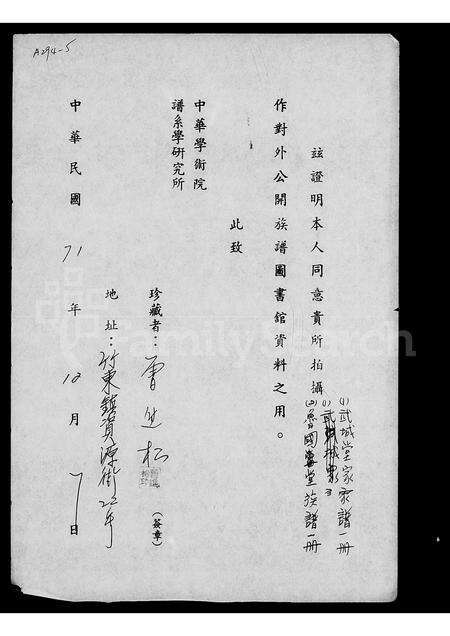 A294-5
茲證明本人同意貴所拍攝
(1)武城堂家譜一冊
(2)魯國堂族譜一冊
作對外公開族譜圖書館資料之用。
此致
中華學術院
譜系學研究所
珍藏者：曾 松
(簽章)
地址：竹東鎮資源街22号
中華民國71年12月7日
FamilySearch